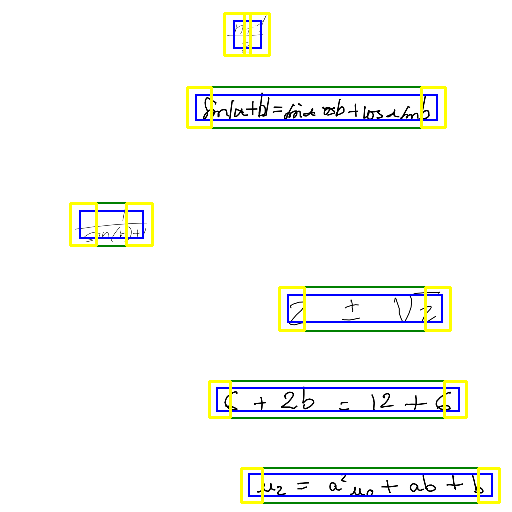 sin(a+b)=sin a cos b + cos a sin b
2 ± √2
6 + 2b = 12 + 6
u₂ = a²u₀ + ab + b